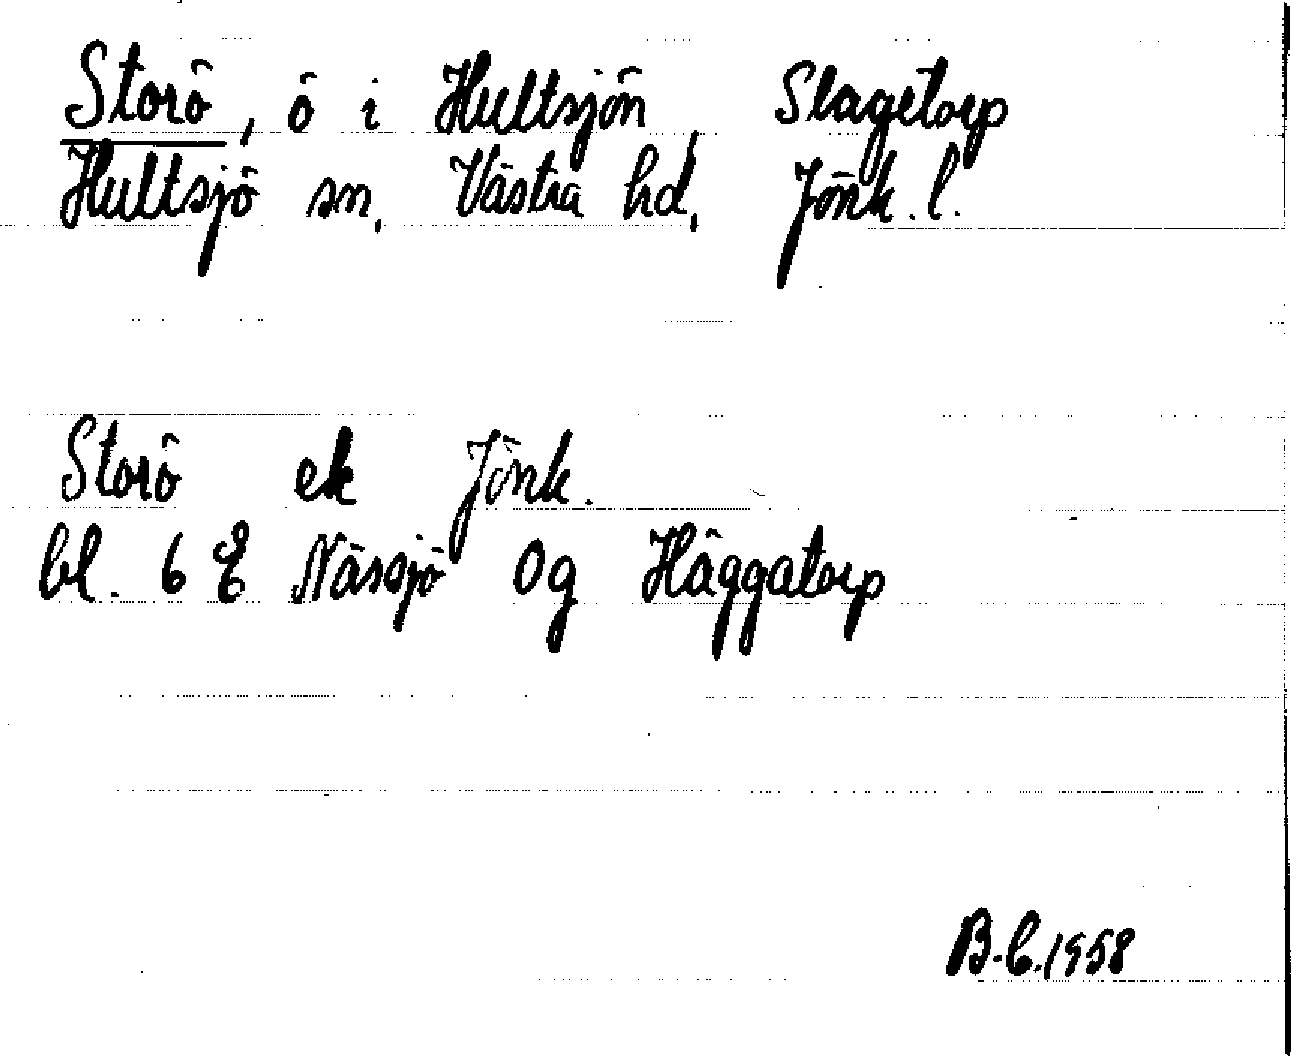 Storö, ö i Hultsjön Slagetorp
Hultsjö sn. Västra hd, Jönk.l.
Storö ek Jönk.
bl. 6 E Nässjö 0g Häggatorp
B.C.1958